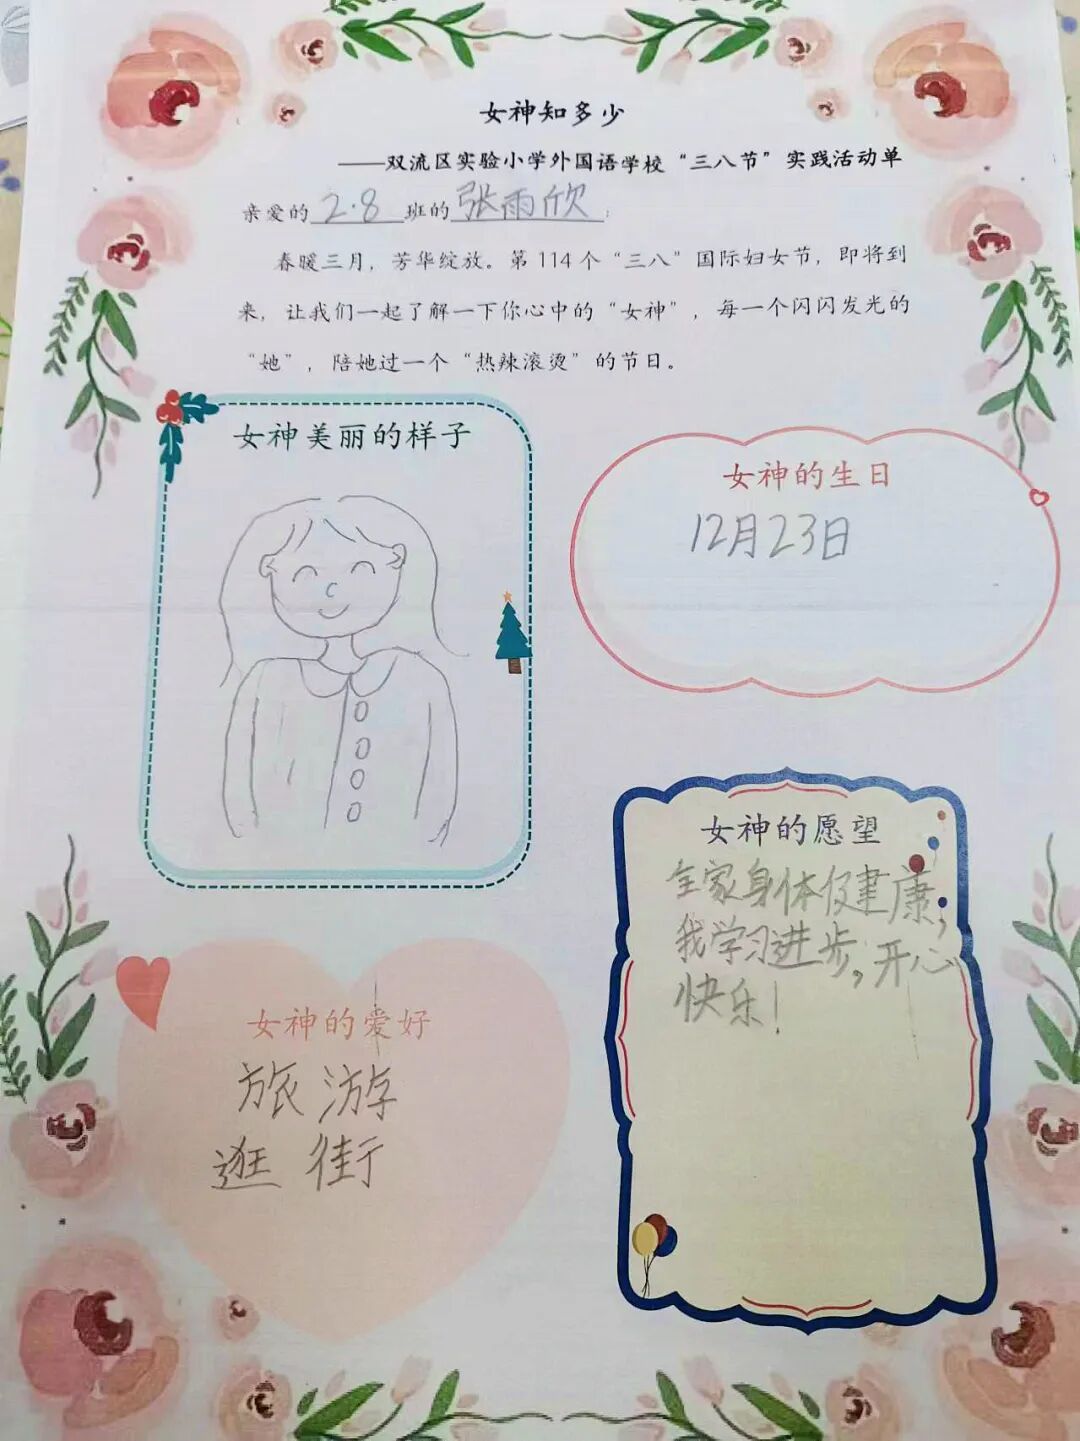 女神知多少
——双流区实验小学外国语学校“三八节”实践活动单
亲爱的 2.8 班的 张雨欣：
春暖三月，芳华绽放。第 114 个“三八”国际妇女节，即将到
来，让我们一起了解一下你心中的“女神”，每一个闪闪发光的
“她”，陪她过一个“热辣滚烫”的节日。
女神美丽的样子
女神的生日
12月23日
女神的愿望
全家身体健康，
我学习进步，开心
快乐！
女神的爱好
旅游
逛街